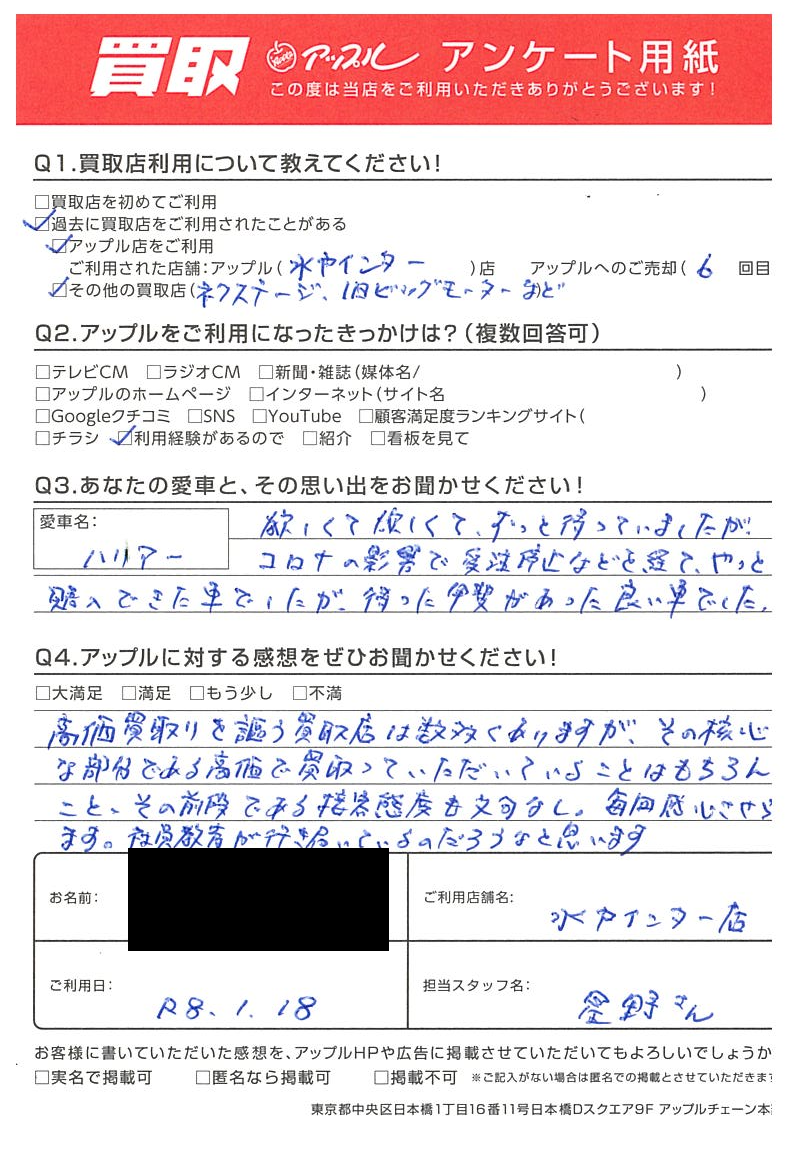 買取 アップル アンケート用紙
この度は当店をご利用いただきありがとうございます!
Q1.買取店利用について教えてください!
□買取店を初めてご利用
☑過去に買取店をご利用されたことがある
☑アップル店をご利用
ご利用された店舗:アップル(水戸インター)店 アップルへのご売却(6 回目
☑その他の買取店(ネクステージ、旧ビッグモーターなど
Q2.アップルをご利用になったきっかけは?(複数回答可)
□テレビCM □ラジオCM □新聞・雑誌(媒体名/ )
□アップルのホームページ □インターネット(サイト名 )
□Googleクチコミ □SNS □YouTube □顧客満足度ランキングサイト(
□チラシ ☑利用経験があるので □紹介 □看板を見て
Q3.あなたの愛車と、その思い出をお聞かせください!
愛車名:
ハリアー
欲しくて欲しくて、ずっと待っていましたが、
コロナの影響で受注停止などを経て、やっと
購入できた車でしたが、待った甲斐があった良い車でした。
Q4.アップルに対する感想をぜひお聞かせください!
□大満足 □満足 □もう少し □不満
高価買取りを謳う買取店は数多くありますが、その核心
な部分である高価で買取っていただいていることはもちろん
こと、その前段である接客態度も文句なし。毎回感心させら
ます。社員教育が行き届いているのだろうなと思います
お名前:
ご利用店舗名:
水戸インター店
ご利用日:
R8.1.18
担当スタッフ名:
星野さん
お客様に書いていただいた感想を、アップルHPや広告に掲載させていただいてもよろしいでしょうか
□実名で掲載可 □匿名なら掲載可 □掲載不可 ※ご記入がない場合は匿名での掲載とさせていただきます
東京都中央区日本橋1丁目16番11号日本橋Dスクエア9F アップルチェーン本